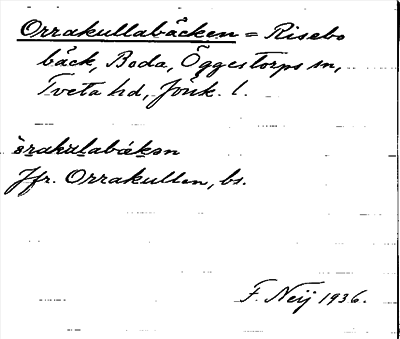 Orrakullabäcken = Risebo
bäck, Boda, Öggestorps sn,
Tveta hd, Jönk. l.
òrakulabäkən
Jfr. Orrakullen, bs.
F. Neij 1936.